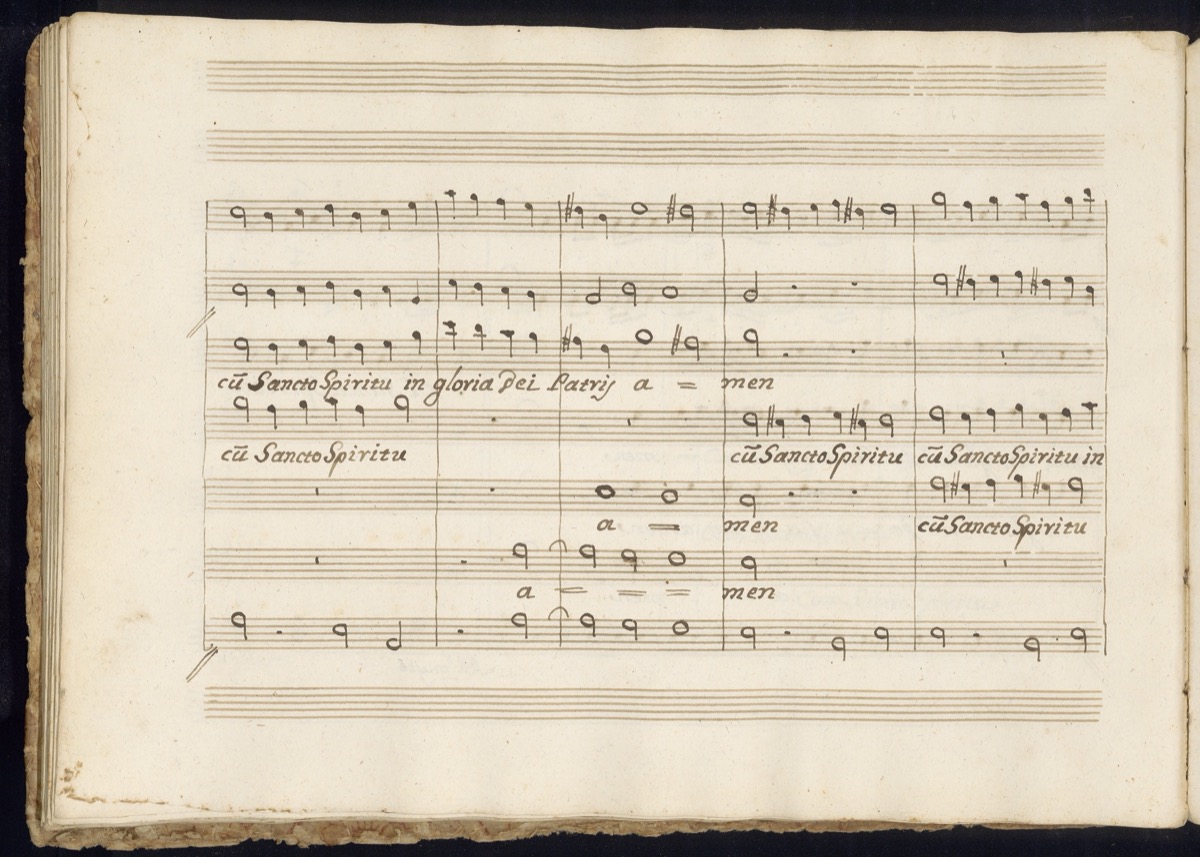 cū Sancto Spiritu in gloria Dei Patris a = men
cū Sancto Spiritu cū Sancto Spiritu cū Sancto Spiritu in
a = men cū Sancto Spiritu
a = = = men